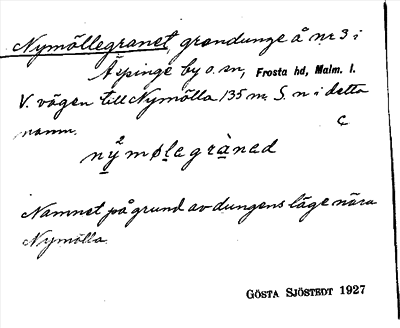 Nymöllegranet, grandunge å nr 3 i
Äspinge by o. sn, Frosta hd, Malm. l.
V. vägen till Nymölla 135 m. S. n i detta
namn. C
ny²møla gràned
Namnet på grund av dungens läge nära
Nymölla.
GÖSTA SJÖSTEDT 1927